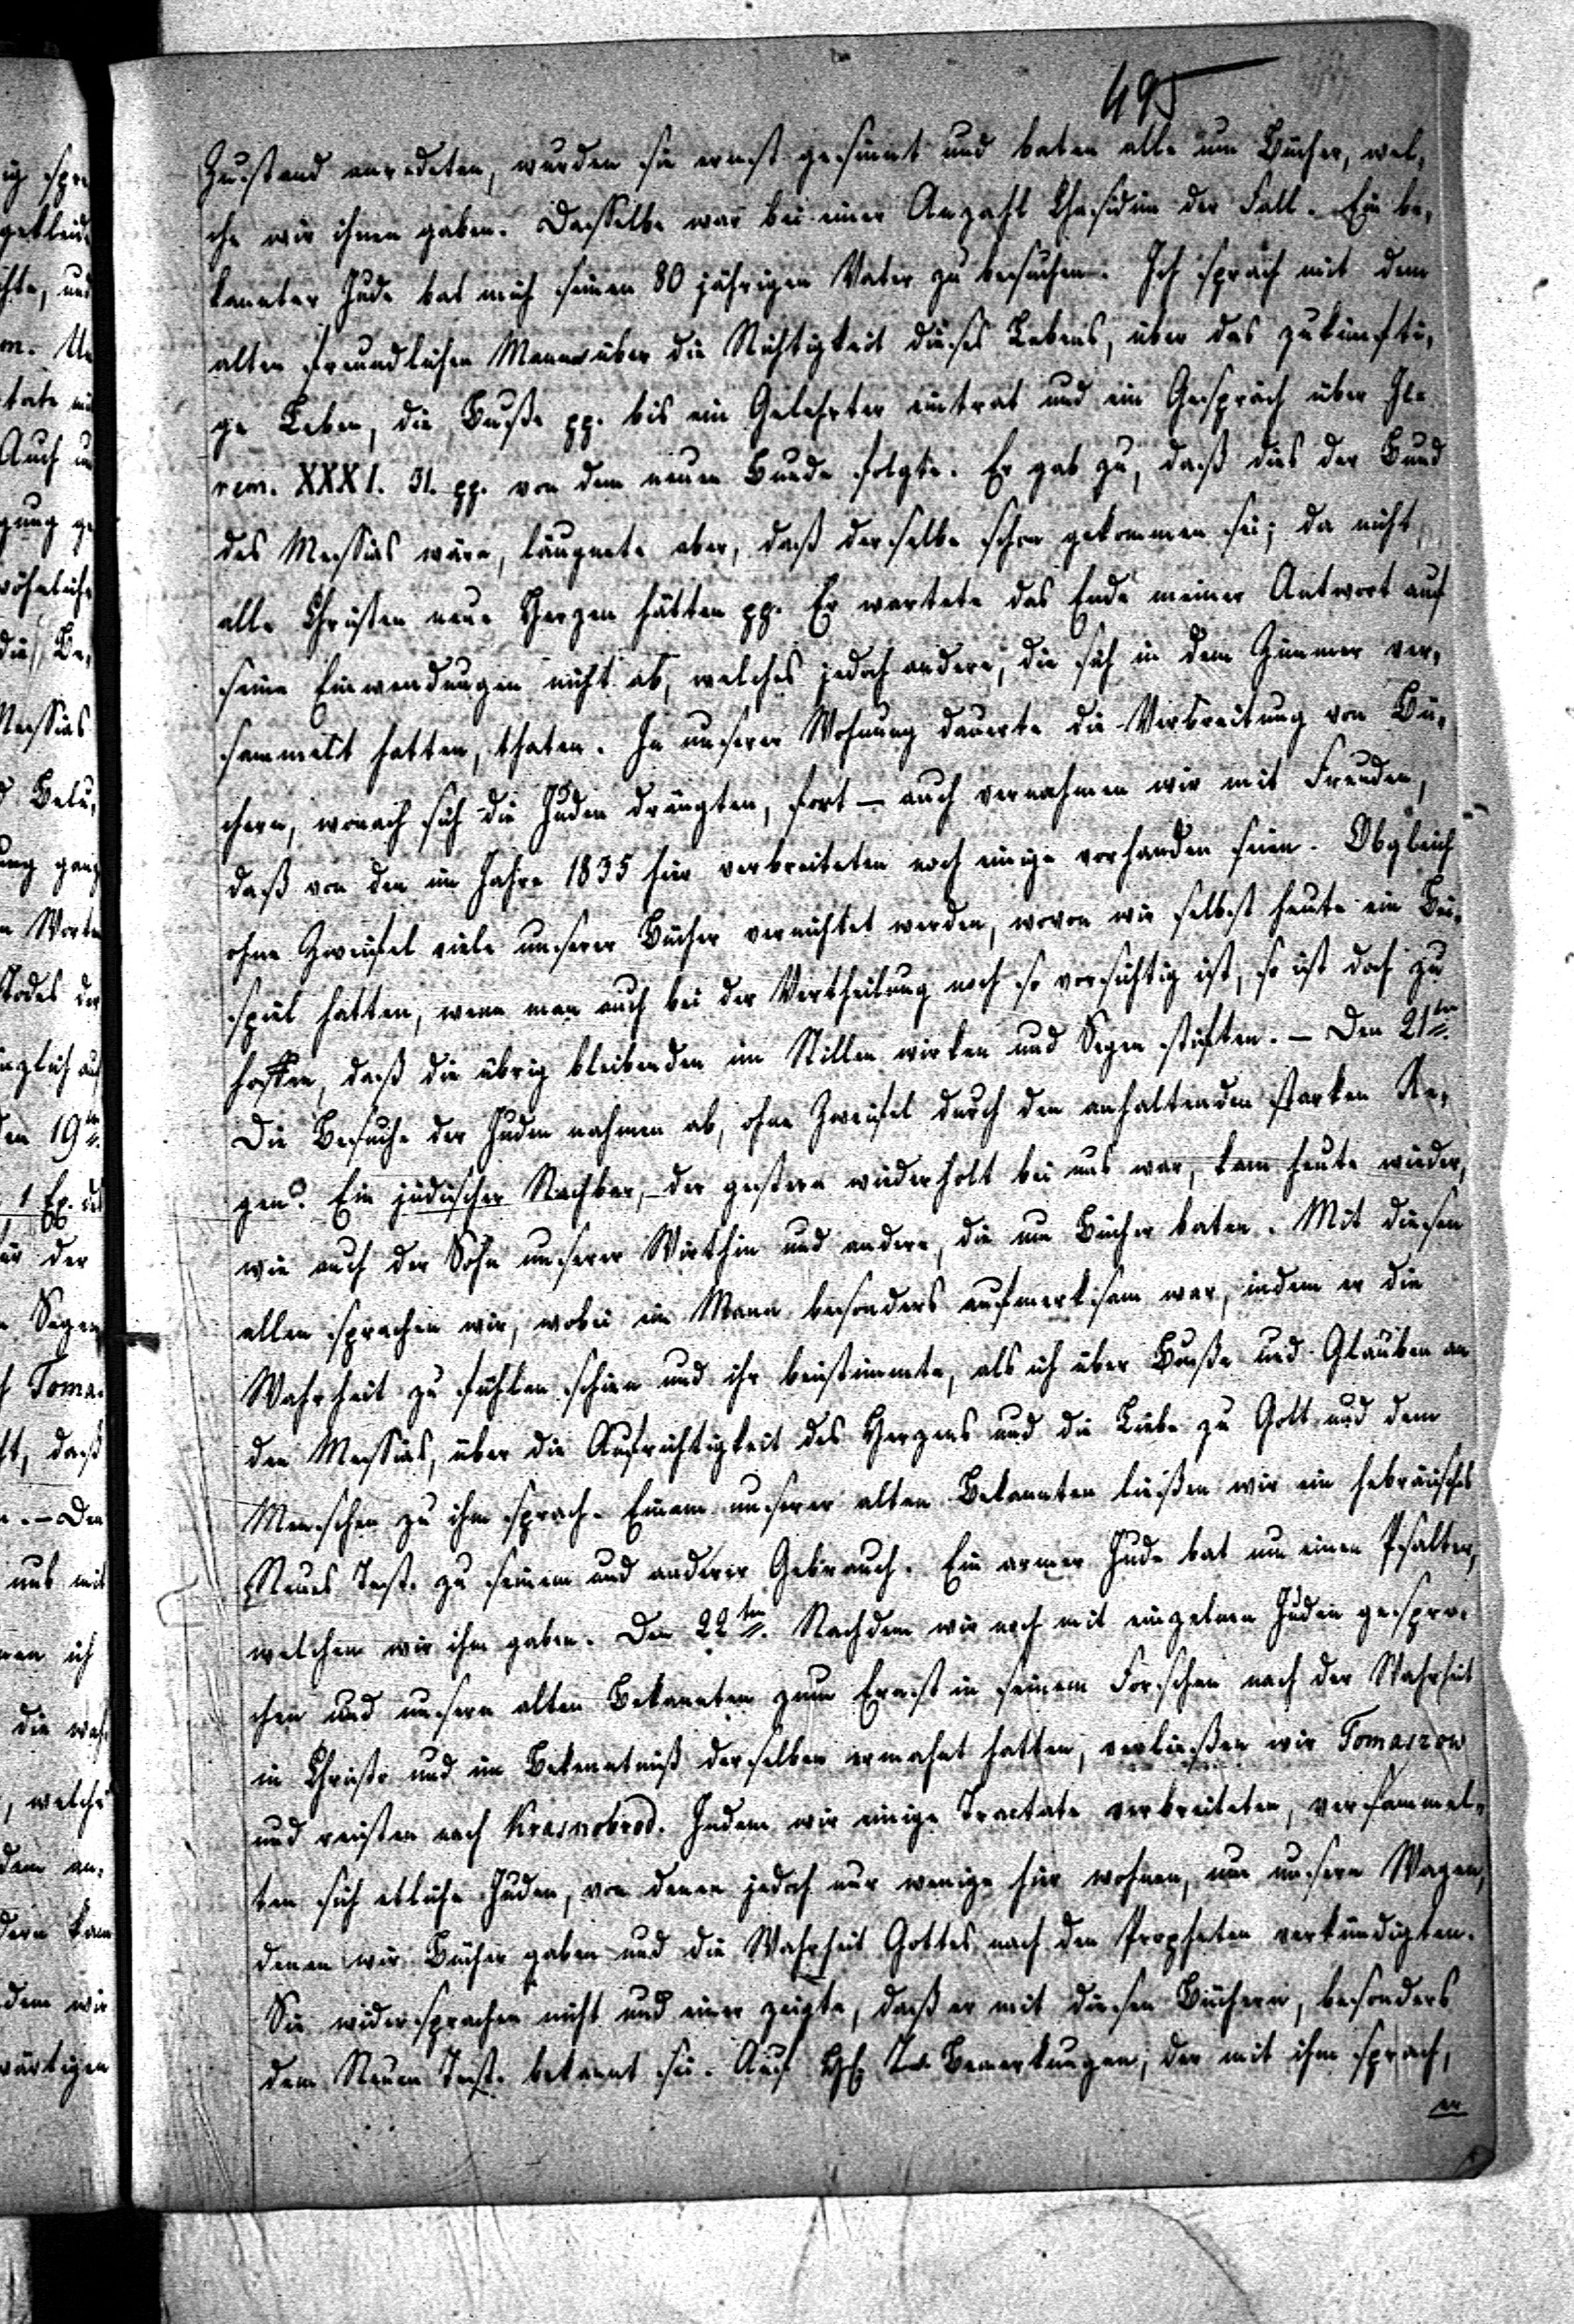 495
Zustand anredeten, wurden sie ernst gesinnt und baten alle um Bücher, wel-
che wir ihnen gaben. Dasselbe war bei einer Anzahl Chasidim der Fall. Ein be-
kannter Jude bat mich seinen 80 jährigen Vater zu besuchen. Ich sprach mit dem
alten freundlichen Manne über die Nichtigkeit dieses Lebens, über das zukünfti-
ge Leben, die Buße pp. bis ein Gelehrter eintrat und ein Gespräch über Je-
rem. XXXI. 31. pp. von dem neuen Bunde folgte. Er gab zu, daß dies der Bund
des Messias wäre, läugnete aber, daß derselbe schon gekommen sei; da nicht
alle Christen neue Herzen hätten pp. Er wartete das Ende meiner Antwort auf
seine Einwendungen nicht ab, welches jedoch andere, die sich in dem Zimmer ver-
sammelt hatten, thaten. In unserer Wohnung dauerte die Verbreitung von Bü-
chern, wonach sich die Juden drängten, fort – auch vernahmen wir mit Freuden,
daß von den im Jahre 1835 hier verbreiteten noch einige vorhanden seien. Obgleich
ohne Zweifel viele unserer Bücher vernichtet werden, wovon wir selbst heute ein Bei-
spiel hatten, wenn man auch bei der Vertheilung noch so vorsichtig ist, so ist doch zu
hoffen, daß die übrig bleibenden im Stillen wirken und Segen stiften. – Den 21ten.
Die Besuche der Juden nahmen ab, ohne Zweifel durch den anhaltenden starken Re-
gen. Ein jüdischer Nachbar, der gestern wiederholt bei uns war, kam heute wieder,
wie auch der Sohn unserer Wirthin und andere, die um Bücher baten. Mit diesen
allen sprachen wir, wobei ein Mann besonders aufmerksam war, indem er die
Wahrheit zu fühlen schien und ihr beistimmte, als ich über Buße und Glauben an
den Messias, über die Aufrichtigkeit des Herzens und die Liebe zu Gott und dem
Menschen zu ihm sprach. Einem unserer alten Bekannten ließen wir ein hebräisches
Neues Test. zu seinem und anderer Gebrauch. Ein armer Jude bat um einen Psalter,
welchen wir ihm gaben. Den 22ten. Nachdem wir noch mit einzelnen Juden gespro-
chen und unsern alten Bekannten zum Ernst in seinem Forschen nach der Wahrheit
in Christo und im Bekenntniß derselben ermahnt hatten, verließen wir Tomaszow
und reisten nach Krasnobrod. Indem wir einige Tractate verbreiteten, versammel-
ten sich etliche Juden, von denen jedoch nur wenige hier wohnen, um unsern Wagen,
denen wir Bücher gaben und die Wahrheit Gottes nach den Propheten verkündigten.
Sie widersprachen nicht und einer zeigte, daß er mit diesen Büchern, besonders
dem Neuen Test. bekannt sei. Auf Bemerkungen, der mit ihm sprach,
er